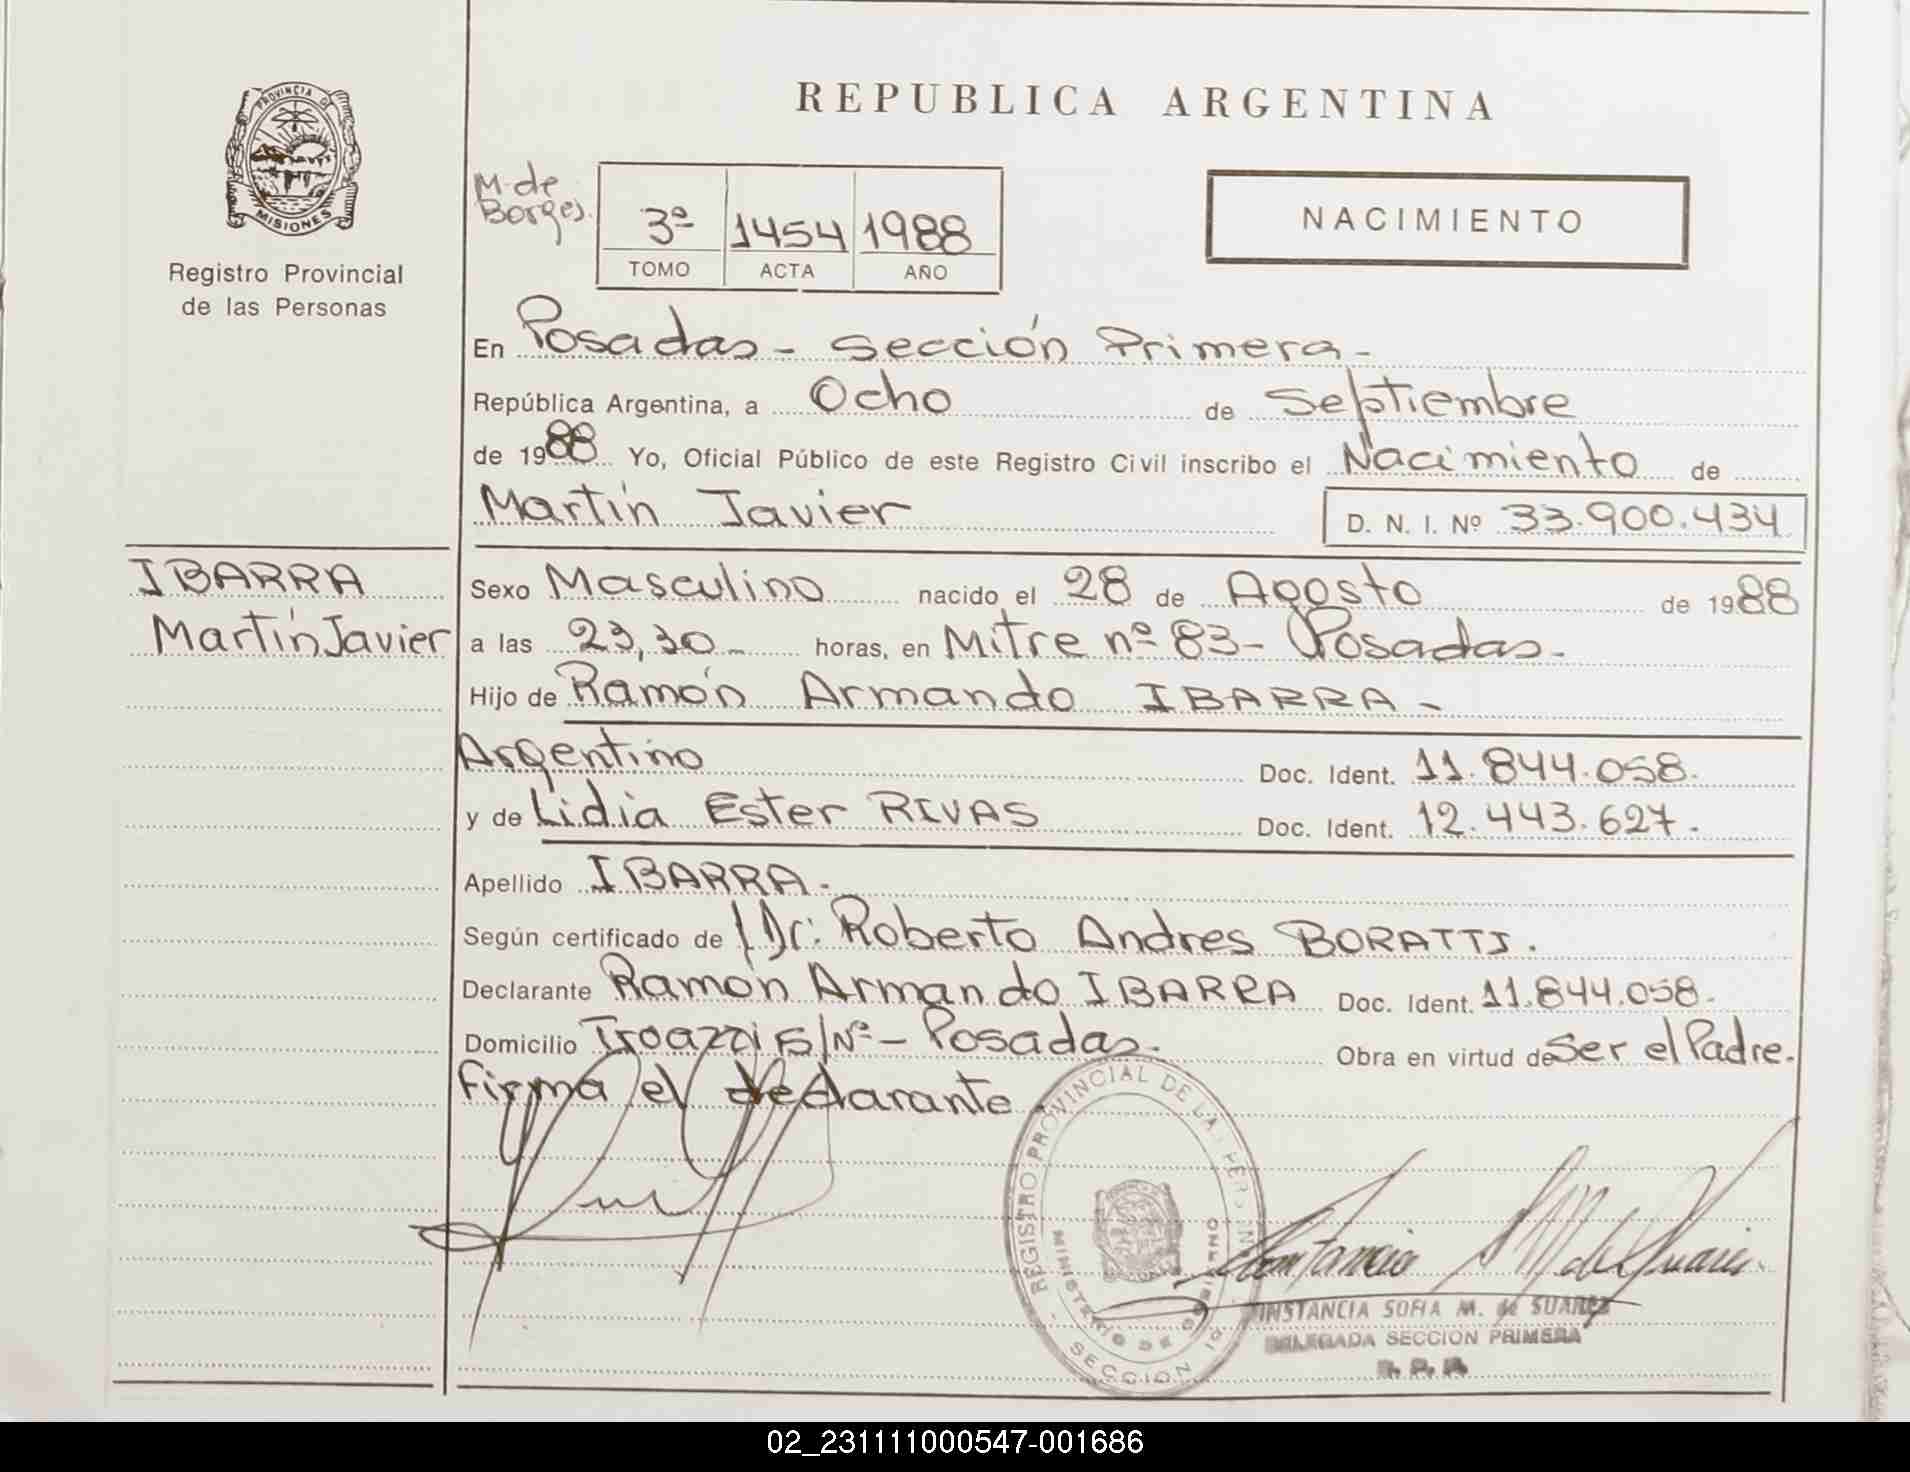 REPUBLICA ARGENTINA
PROVINCIA D
MISIONES
Registro Provincial
de las Personas
M. de
Borges.
3º 1454 1988
TOMO ACTA AÑO
NACIMIENTO
En Posadas - Sección Primera -
República Argentina, a Ocho de Septiembre
de 1988 Yo, Oficial Público de este Registro Civil inscribo el Nacimiento de
Martín Javier
D. N. I. Nº 33.900.434
IBARRA
Martín Javier
Sexo Masculino nacido el 28 de Agosto de 1988
a las 23,30 - horas, en Mitre nº 83 - Posadas -
Hijo de Ramón Armando IBARRA -
Argentino Doc. Ident. 11.844.058.
y de Lidia Ester RIVAS Doc. Ident. 12.443.627.
Apellido IBARRA.
Según certificado de Dr: Roberto Andres BORATTI.
Declarante Ramón Armando IBARRA Doc. Ident. 11.844.058.
Domicilio S/Nº - Posadas. Obra en virtud de Ser el Padre.
Firma el declarante
REGISTRO PROVINCIAL DE LAS PERSONAS
MINISTERIO DE GOBIERNO
SECCION 1
Constancia S M de Suarez
CONSTANCIA SOFIA M. de SUAREZ
DELEGADA SECCION PRIMERA
R. P. P.
02_231111000547-001686